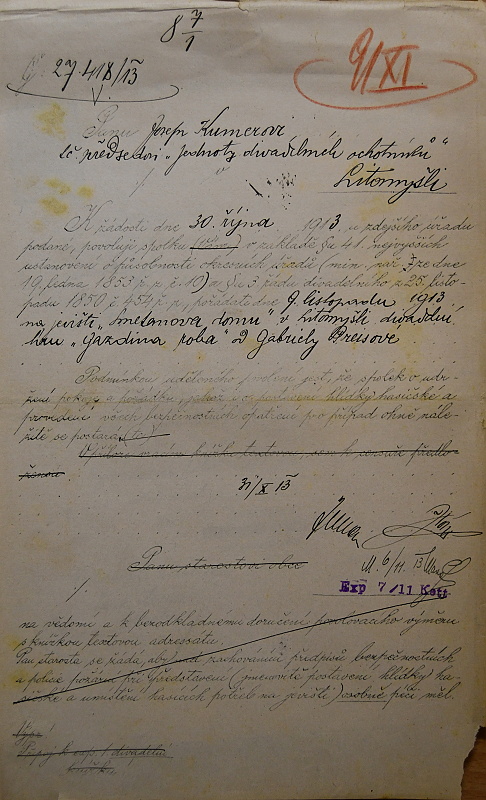 8 7/1
27.418/13
9/XI
Panu Josefu Kumerovi
předsedovi „Jednoty divadelních ochotníků“
Litomyšli
K žádosti dne 30. října 1913, u zdejšího úřadu
podané, povoluji spolku v základě §u 41. nejvyšších
ustanovení o působnosti okresních úřadů (min. nař. ze dne
19. ledna 1853 ř. z. č. 10) a §u 3. řádu divadelního z 25. listo-
pádu 1850 č. 454 ř. z., pořádati dne 9. listopadu 1913
na jevišti „Smetanova domu“ v Litomyšli divadelní
hru „Gazdina roba“ od Gabriely Preisové
Podmínkou uděleného svolení jest, že spolek o udr-
žení pokoje a pořádku, jakož i o postavení hlídky hasičské a
provedení všech bezpečnostních opatření pro případ ohně nále-
žitě se postará.
31/X 13
6/11 13
Exp 7/11 Kott
Panu starostovi obce
na vědomí a k bezodkladnému doručení povolovacího výměru
s knížkou textovou adressatu.
Pan starosta se žádá, aby zachovávání předpisů bezpečnostních
a policie požární při představení (jmenovitě postavení hlídky ha-
sičské a umístění hasicích potřeb na jevišti) osobně péči měl.